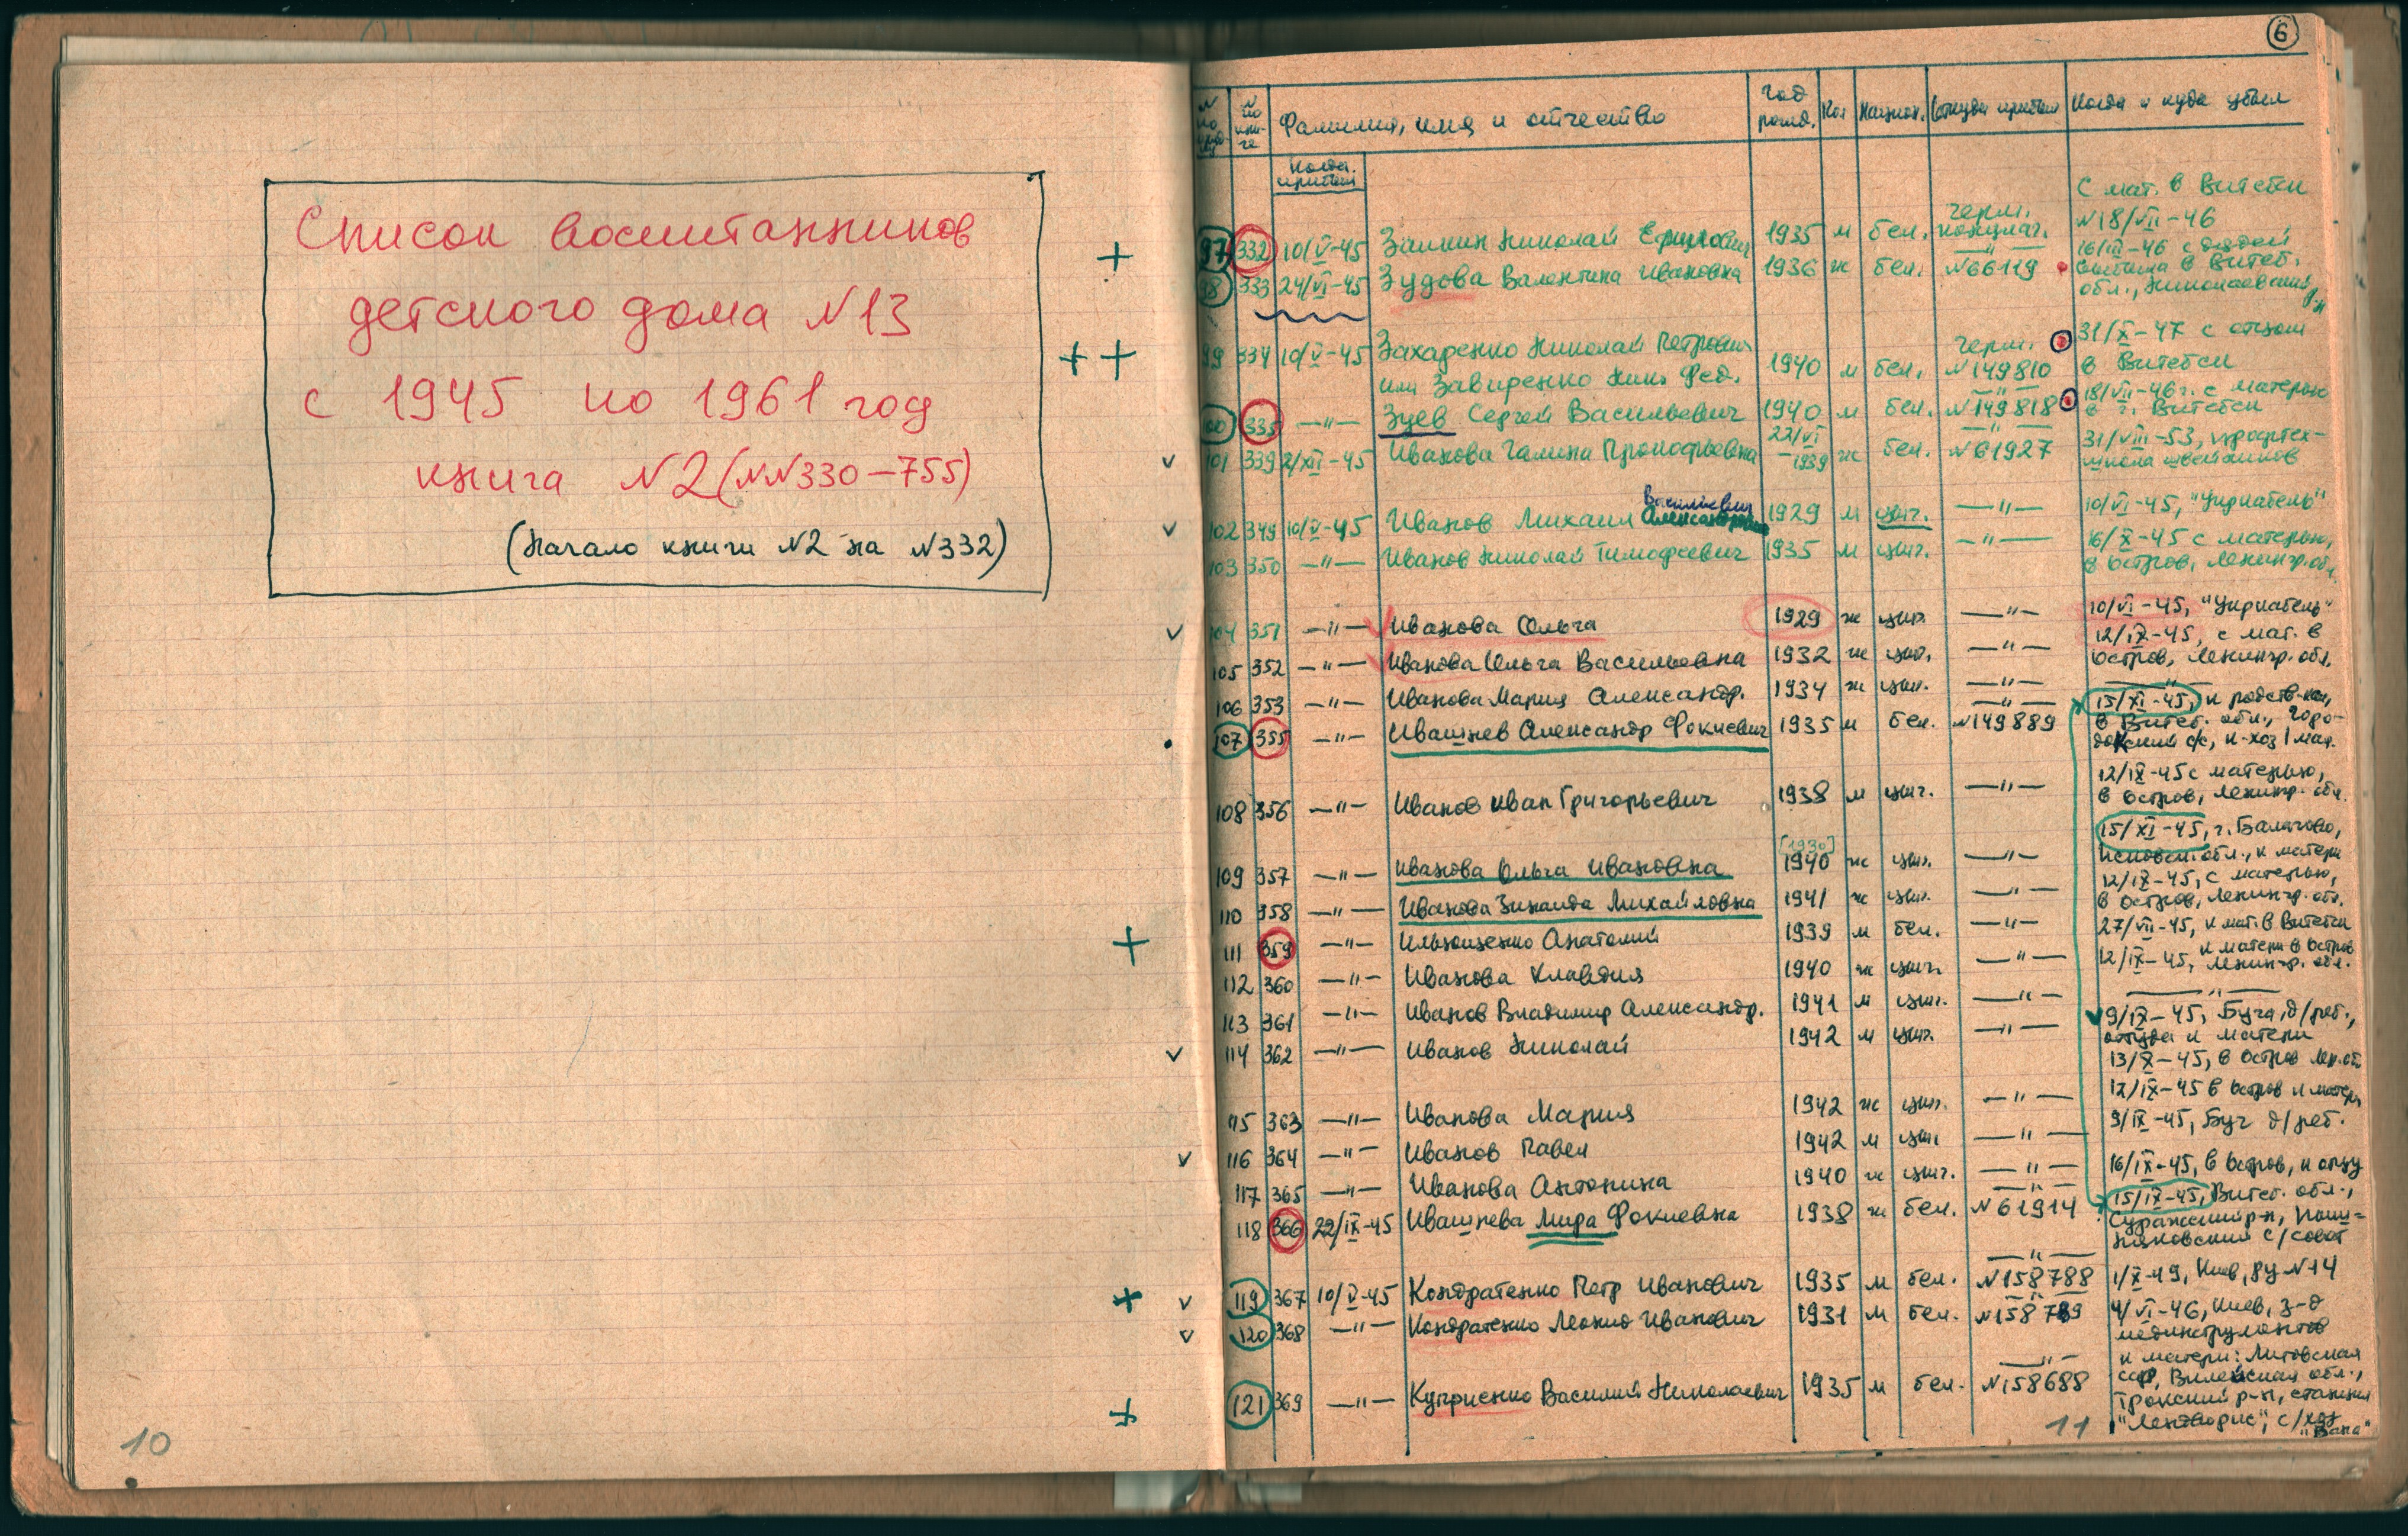 Список воспитанников
детского дома N13
с 1945 по 1961 год
книга N2 (NN330-755)
(Начало книги N2 на N332)
10
6
N по N по книге Фамилия, имя и отчество год рожд. Пол Национ. Откуда прибыл Когда и куда убыл
Когда прибыл
С мат. в Витебск
97 332 10/V-45 Заикин Николай 1935 м бел. герм. концлаг. N18/VII-46
98 333 24/VI-45 Зудова Валентина Ивановна 1936 ж бел. —"— N66119 16/III-46 с дядей в Витеб. обл.,
99 334 10/V-45 Захаренко Николай Петрович 1940 м бел. герм. N149810 31/X-47 с отцом
или Завиренко Ник. Фед. в Витебск
100 335 —"— Зуев Сергей Васильевич 1940 м бел. —"— N149818 18/VII-46г. с матерью
в г. Витебск
101 339 2/XII-45 Иванова Галина Прокофьевна 22/VI 1939 ж бел. —"— N61927 31/VIII-53, профтех-
школа швейников
Васильевич
102 349 10/V-45 Иванов Михаил Александрович 1929 м цыг. —"— 10/VI-45, "Укркабель"
103 350 —"— Иванов Николай Тимофеевич 1935 м цыг. —"— 16/X-45 с матерью,
в Остров, Ленингр. обл.
104 351 —"— Иванова Ольга 1929 ж цыг. —"— 10/VI-45, "Укркабель"
105 352 —"— Иванова Ольга Васильевна 1932 ж цыг. —"— 12/IX-45, с мат. в
Остров, Ленингр. обл.
106 353 —"— Иванова Мария Александр. 1934 ж цыг. —"— —"—
107 355 —"— Ивашнев Александр Фокиевич 1935 м бел. —"— N149889 15/XI-45, к родств-кам,
в Витеб. обл., Горо-
докский с/с, к-хоз 1 мая.
108 356 —"— Иванов Иван Григорьевич 1938 м цыг. —"— 12/IX-45 с матерью,
в Остров, Ленингр. обл.
[1930]
109 357 —"— Иванова Ольга Ивановна 1940 ж цыг. —"— 15/XI-45, г.
Псковск. обл., к матери
110 358 —"— Иванова Зинаида Михайловна 1941 ж цыг. —"— 12/IX-45, с матерью,
в Остров, Ленингр. обл.
111 359 —"— Ильющенко Анатолий 1939 м бел. —"— 27/VII-45, к мат. в Витебск
112 360 —"— Иванова Клавдия 1940 ж цыг. —"— 12/IX-45, к матери в Остров
Ленингр. обл.
113 361 —"— Иванов Владимир Александр. 1941 м цыг. —"— —"—
114 362 —"— Иванов Николай 1942 м цыг. —"— 9/IX-45, Буча, д/реб.,
откуда к матери
13/X-45, в Остров Лен. об.
115 363 —"— Иванова Мария 1942 ж цыг. —"— 12/IX-45 в Остров к матери
116 364 —"— Иванов Павел 1942 м цыг. —"— 9/IX-45, Буч д/реб.
117 365 —"— Иванова Антонина 1940 ж цыг. —"— 16/IX-45, в Остров, к отцу
118 366 22/IX-45 Ивашнева Мира Фокиевна 1938 ж бел. —"— N61914 15/IX-45, Витеб. обл.,
Суражский р-н,
с/совет
119 367 10/V-45 Кондратенко Петр Иванович 1935 м бел. —"— N158788 1/X-49, Киев, РУ N14
120 368 —"— Кондратенко Леонид Иванович 1931 м бел. —"— N158789 4/VI-46, Киев, з-д
мединструментов
121 369 —"— Куприенко Василий Николаевич 1935 м бел. —"— N158688 к матери: Литовская
ССР, Вилейская обл.,
Трокский р-н, станция
"Лентворис", с/хоз
"Вака"
11